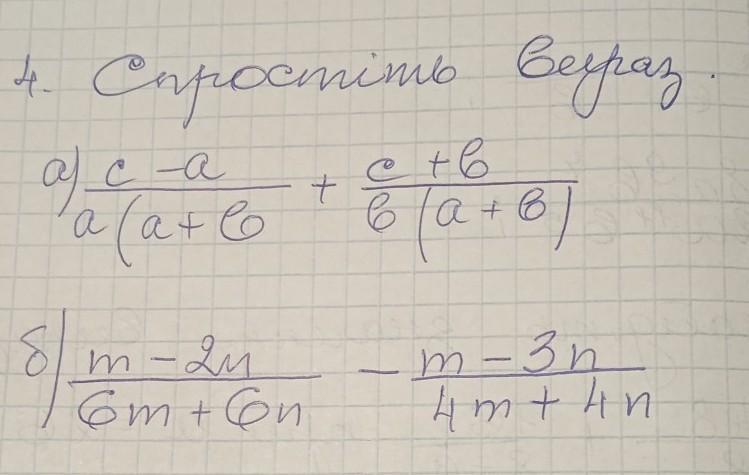 4. Спростіть вираз.
а) (c - a)/(a(a + b) + (c + b)/(b(a + b))
б) (m - 2n)/(6m + 6n) - (m - 3n)/(4m + 4n)